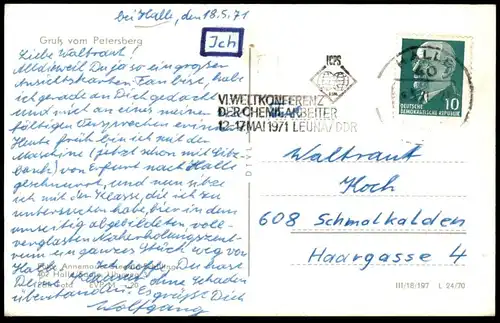 bei Halle, den 18.5.71
Gruß vom Petersberg
Ich
Liebe Waltraut!
Alldieweil Du ja so ein großer
Ansichtskarten Fan bist, habe
ich gerade an Dich gedacht
und mich an eines meiner
fälligen Versprechen erinnert
Heute früh bin ich mit der
Maschine (jetzt schon mit Sitz-
bank) von Erfurt nach Halle
gescheuert, und nun sitze
ich mit der Klasse, die ich zu
untersuchen habe, bin in dem
umseitig abgebildeten voll-
verglasten Naherholungszent-
rum ein ganzes Stück weg von
Halle. Ich hoffe Du hast
Deine Klausur ohne Schaden
überstanden. Es grüßt Dich
Wolfgang
ICPS
VI. WELTKONFERENZ
DER CHEMIEARBEITER
12.-17. MAI 1971 LEUNA/DDR
HALLE
DEUTSCHE
DEMOKRATISCHE REPUBLIK
10
Waltraut
Koch
608 Schmalkalden
Haargasse 4
III/18/197 L 24/70